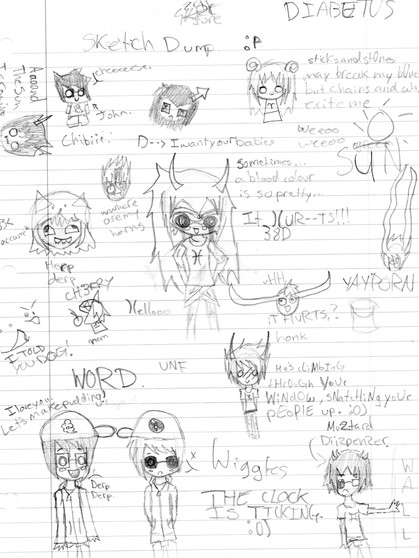 DIABETUS
Sketch Dump
:P
sticks and stones
may break my
but chains and
exite me
cheeeese.
John.
Aaaand
The Sun
Chibiiii:
D--> I want your babies
weeoo
weeoo
SUN
where
are my
horns
sometimes...
a blood colour
is so pretty...
It )(UR--TS!!!
38D
Herp
derp.
CH3RRY
mom
Hellooo
uHH,
iT HURTS,?
YAYPORN
I TOLD
YOU DOG!
honk
HeS cLiMbInG
tHrOuGh YoUr
WiNdOw, sNaTcHiNg YoUr
pEoPlE uP. :O)
WORD.
UNF
I love you.
Let's make pudding!
Muztard
Diizpenzer.
Derp
Derp.
Wiggles
THE CLOCK
IS TICKING.
:O)
WALL